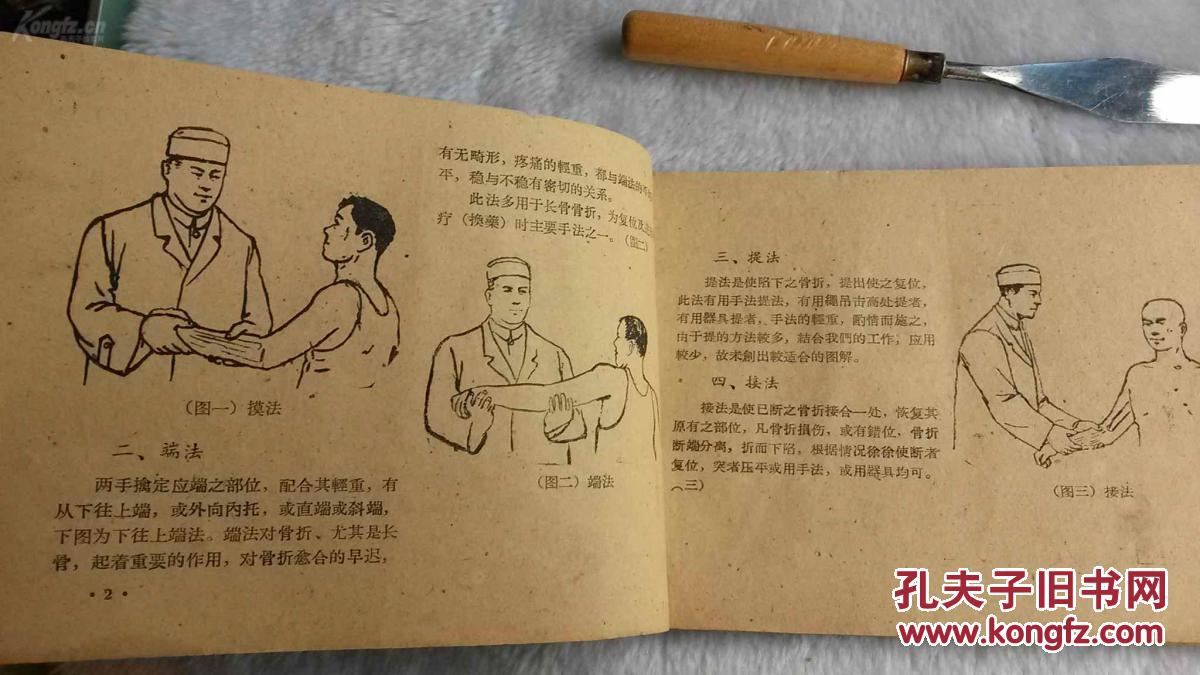 Kongfz.cn
(图一)摸法
二、端法
两手擒定应端之部位，配合其輕重，有
从下往上端，或外向內托，或直端或斜端，
下图为下往上端法。端法对骨折、尤其是长
骨，起着重要的作用，对骨折愈合的早迟，
• 2 •
有无畸形，疼痛的輕重，都与端法的
平，稳与不稳有密切的关系。
此法多用于长骨骨折，为复位及
疗（換藥）时主要手法之一。（图二）
(图二)端法
三、提法
提法是使陷下之骨折，提出使之复位，
此法有用手法提法，有用繩吊击高处提者，
有用器具提者，手法的輕重，酌情而施之，
由于提的方法較多，結合我們的工作，应用
較少，故未創出較适合的图解。
四、接法
接法是使已断之骨折接合一处，恢复其
原有之部位，凡骨折損伤，或有錯位，骨折
断端分离，折而下陷，根据情况徐徐使断者
复位，突者压平或用手法，或用器具均可。
（三）
(图三)接法
孔夫子旧书网
www.kongfz.com